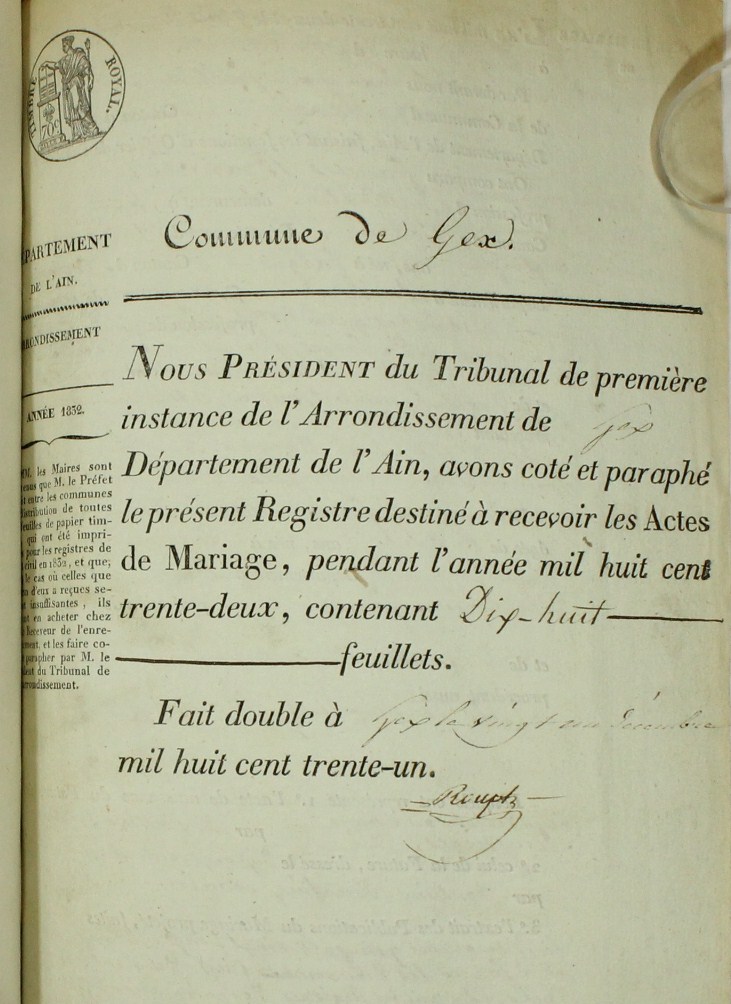 TIMBRE ROYAL.
70c
Commune de Gex.
PARTEMENT
DE L'AIN.
RONDISSEMENT
ANNÉE 1832.
MM. les Maires sont
enus que M. le Préfet
t entre les communes
istribution de toutes
euilles de papier tim-
qui ont été impri-
pour les registres de
civil en 1832, et que,
le cas où celles que
n d'eux a reçues se-
t insuffisantes, ils
nt en acheter chez
Receveur de l'enre-
ment, et les faire co-
parapher par M. le
dent du Tribunal de
rrondissement.
NOUS PRÉSIDENT du Tribunal de première
instance de l'Arrondissement de Gex
Département de l'Ain, avons coté et paraphé
le présent Registre destiné à recevoir les Actes
de Mariage, pendant l'année mil huit cent
trente-deux, contenant Dix-huit
feuillets.
Fait double à Gex le vingt un décembre
mil huit cent trente-un.